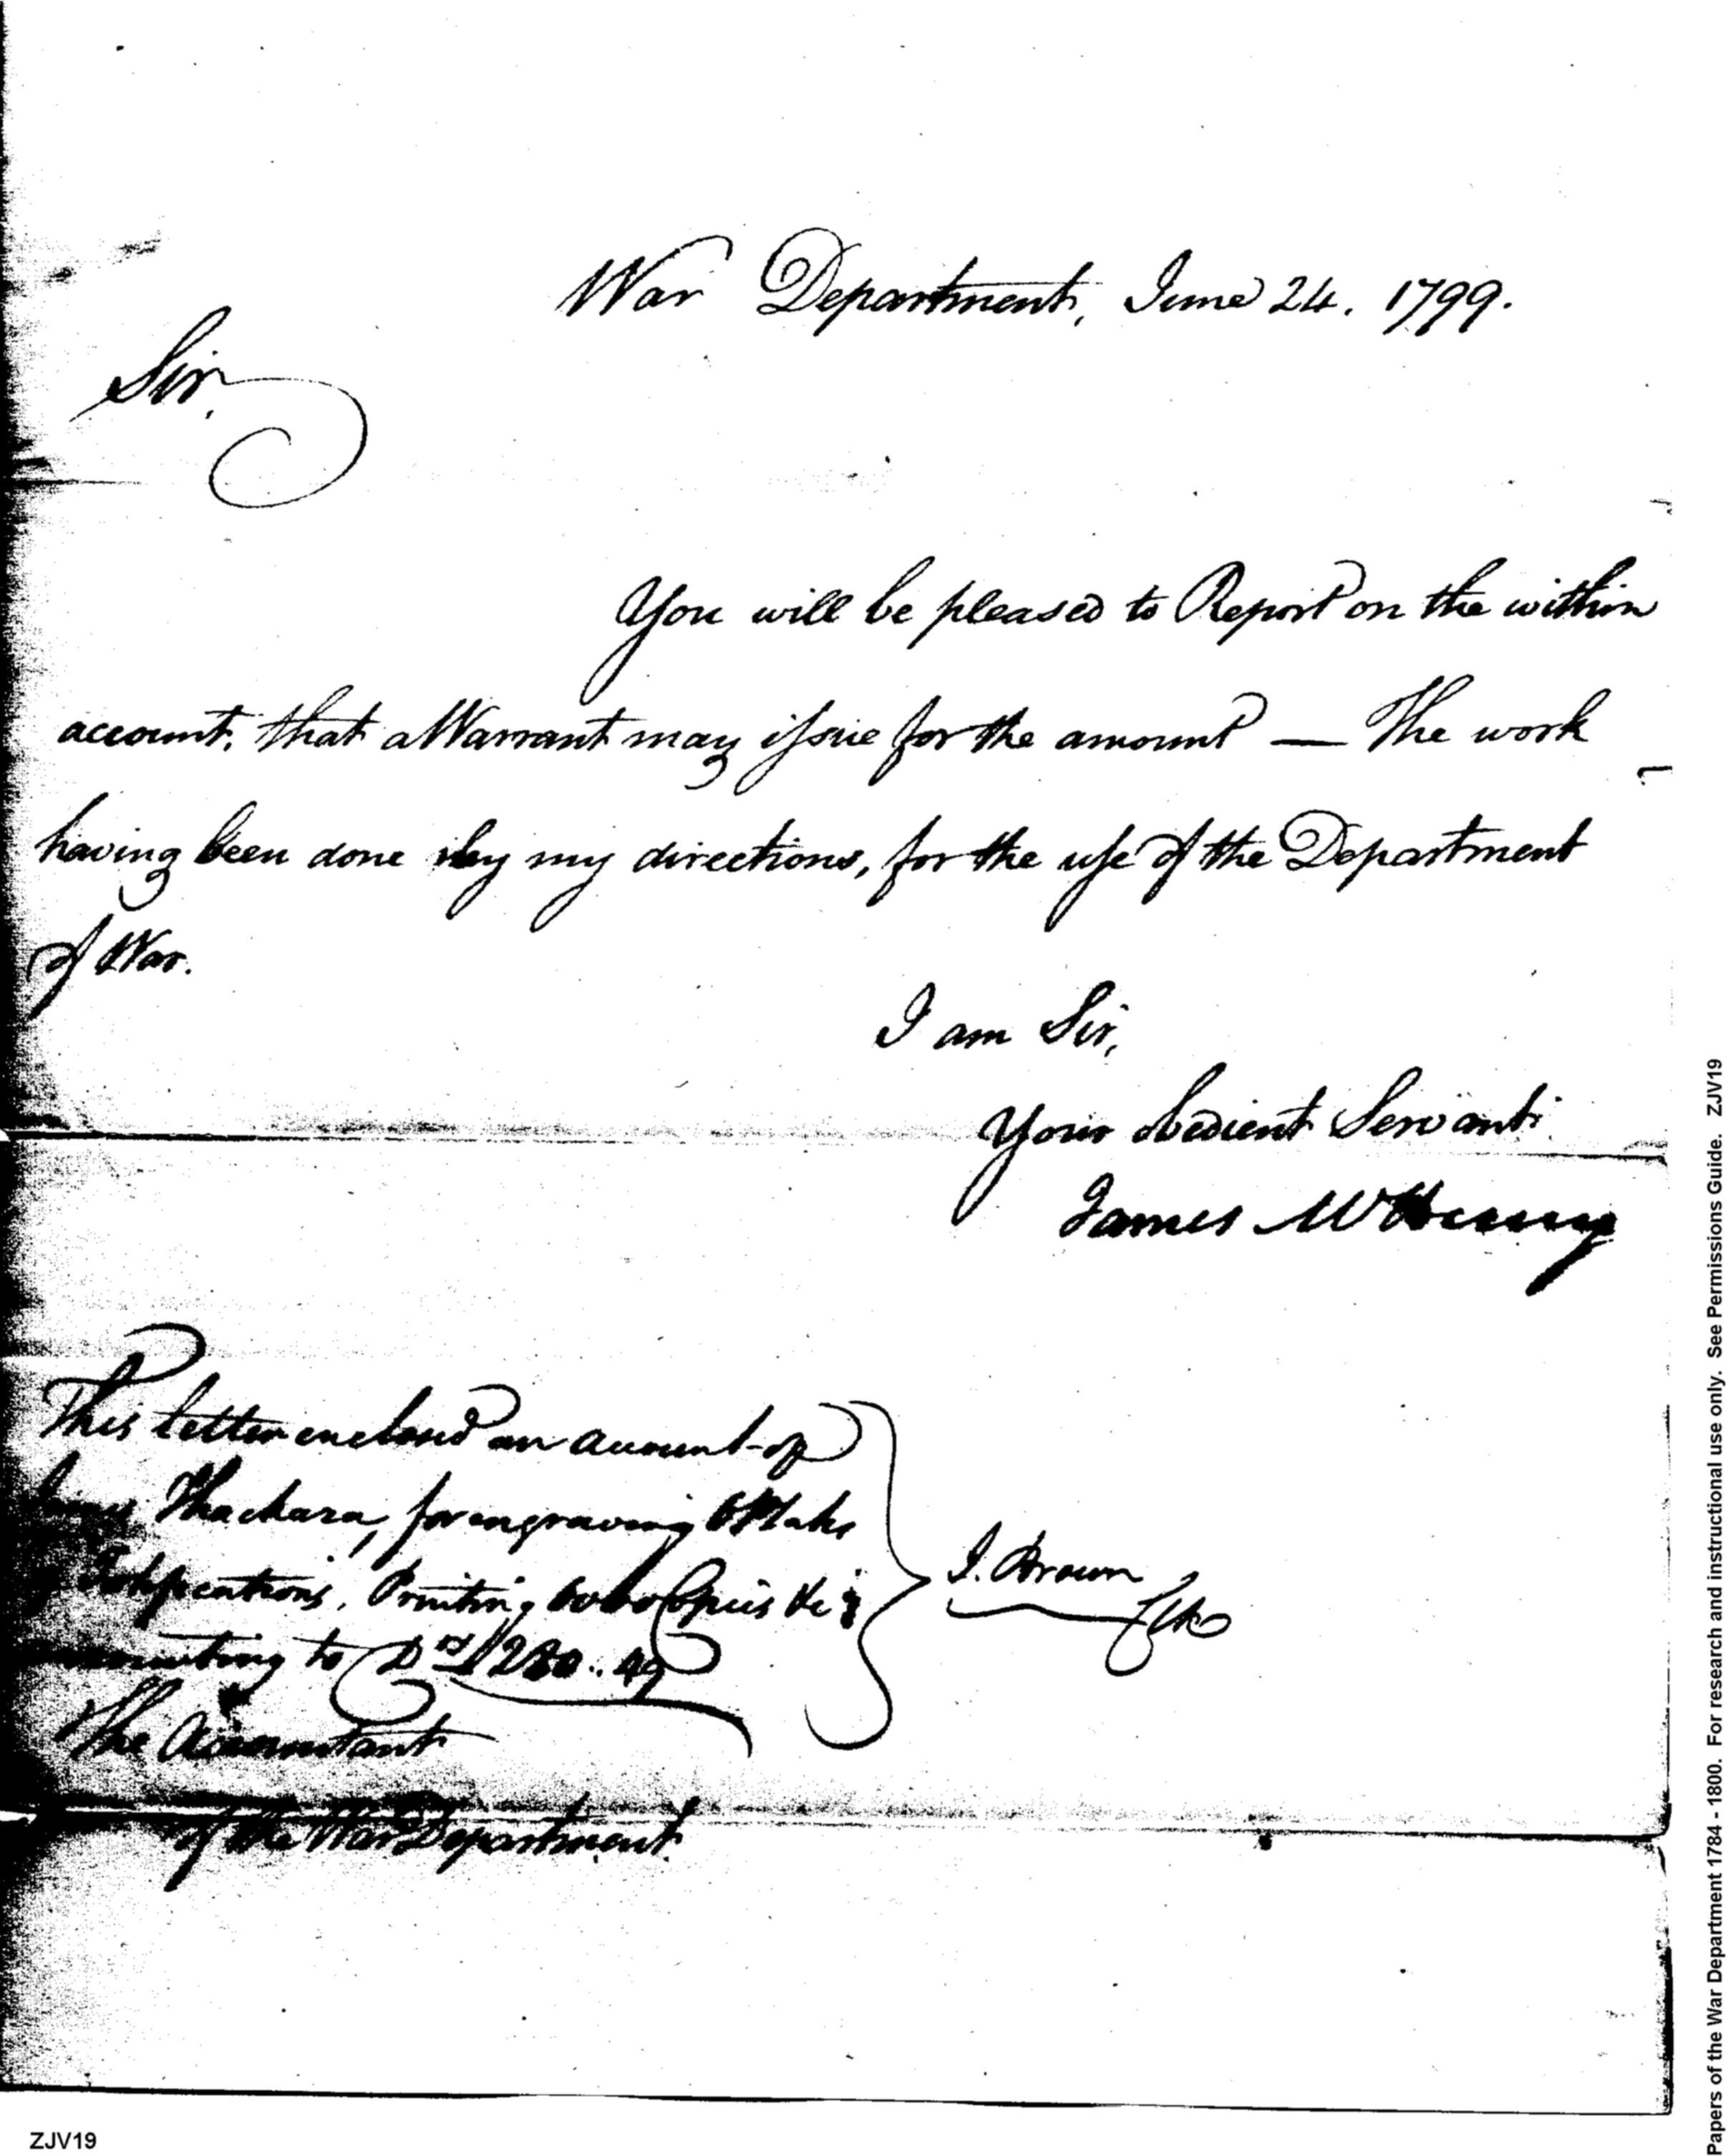 War Department, June 24. 1799.
Sir,
You will be pleased to Report on the within
account, that a Warrant may issue for the amount — The work
having been done by my directions, for the use of the Department
of War.
I am Sir,
Your obedient Servant
James McHenry
This letter enclosed an account of
Thackara, for engraving 6 Plates
Fortifications, Printing Copies &c;
amounting to Drs 1280..49
J. Brown
Clk
The Accountant
of the War Department.
Papers of the War Department 1784 - 1800. For research and instructional use only. See Permissions Guide. ZJV19
ZJV19